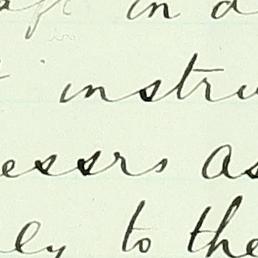 in a
instru
essrs as
ly to the